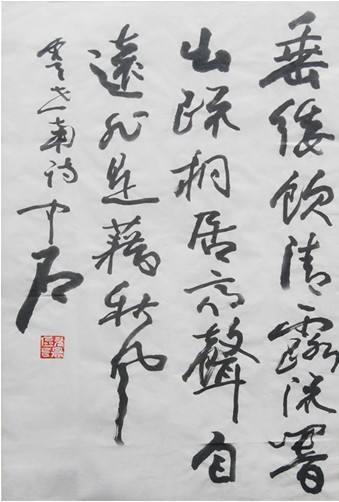 垂緌飲清露流響
出疏桐居高聲自
遠非是藉秋風
虞世南詩中石